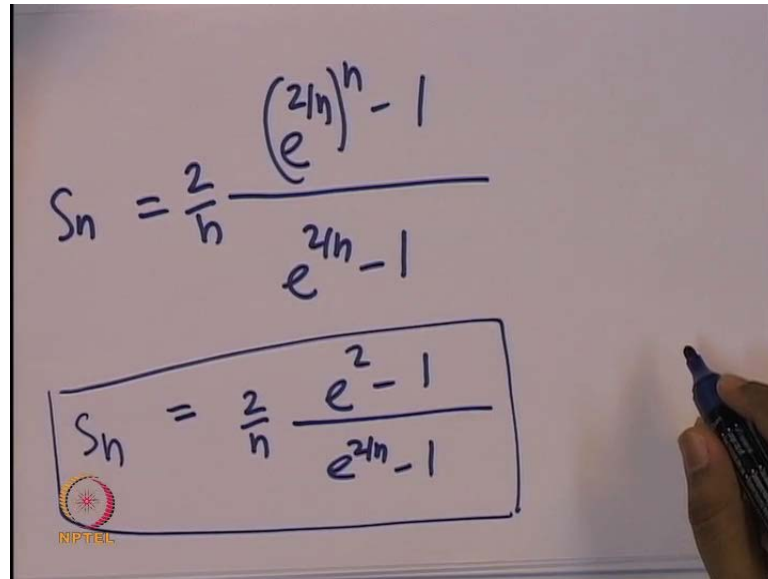 Sn = 2/n ((e^{2/n})^n - 1) / (e^{2/n} - 1)
Sn = 2/n (e^2 - 1) / (e^{2/n} - 1)
NPTEL